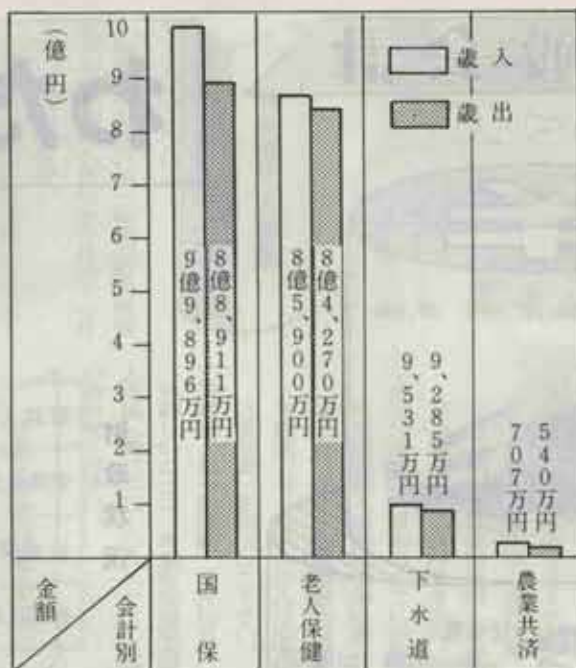 (億円)
10
9
8
7
6
5
4
3
2
1
歳入
歳出
9億9、896万円
8億8、911万円
8億5、900万円
8億4、270万円
9、531万円
9、285万円
707万円
540万円
金額
会計別
国保
老人保健
下水道
農業共済